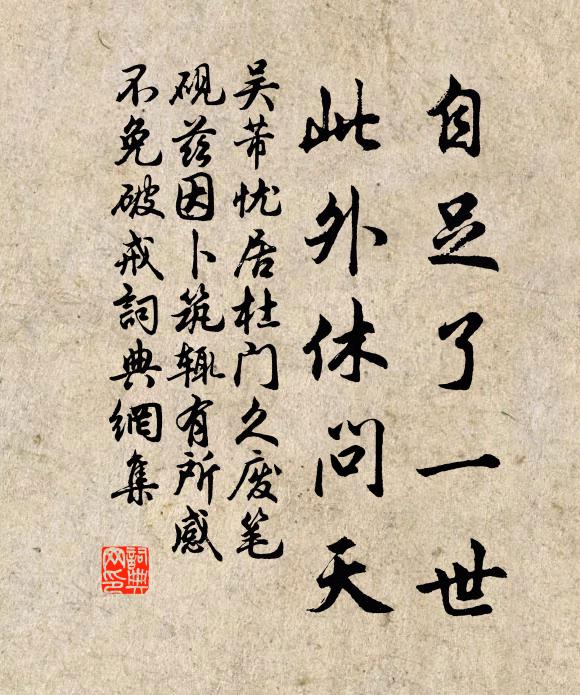 自足了一世
此外休问天
吴芾忧居杜门久废笔
砚兹因卜筑辄有所感
不免破戒詞典網集
詞典网印